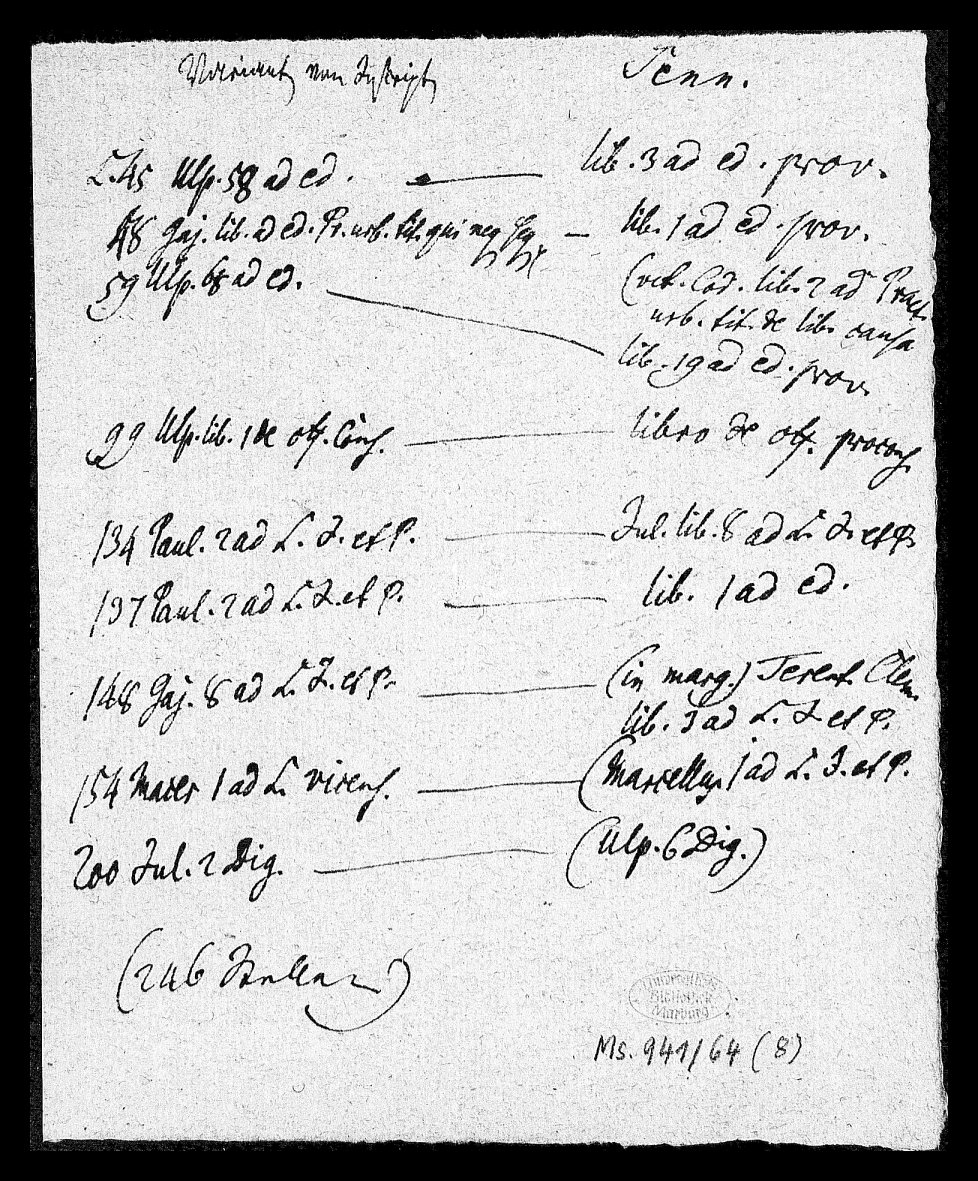 Variant von Inskript Jenn.
L. 45 Ulp. 58 ad ed. — lib. 3 ad ed. prov.
48 Gaj. lib. ad ed. Pr. urb. tit. qui neq — lib. 1 ad ed. prov.
59 Ulp. 68 ad ed. (vet. Cod. lib. 2 ad Praet.
urb. tit. de lib. causa
lib. 19 ad ed. prov.
99 Ulp. lib. 1 de off. Cons. — libro de off. procons.
134 Paul. 2 ad L. J. et P. — Jul. lib. 8 ad L. J. et P.
137 Paul. 2 ad L. J. et P. — lib. 1 ad ed.
148 Gaj. 8 ad L. J. et P. — (in marg.) Terent. Clem.
lib. 3 ad L. J. et P.
154 Macer 1 ad L. vicens. — (Marcellus 1 ad L. J. et P.
200 Jul. 2 Dig. — (Ulp. 6 Dig.)
(246 Stellen)
Universitäts
Bibliothek
Marburg
Ms. 941/64 (8)